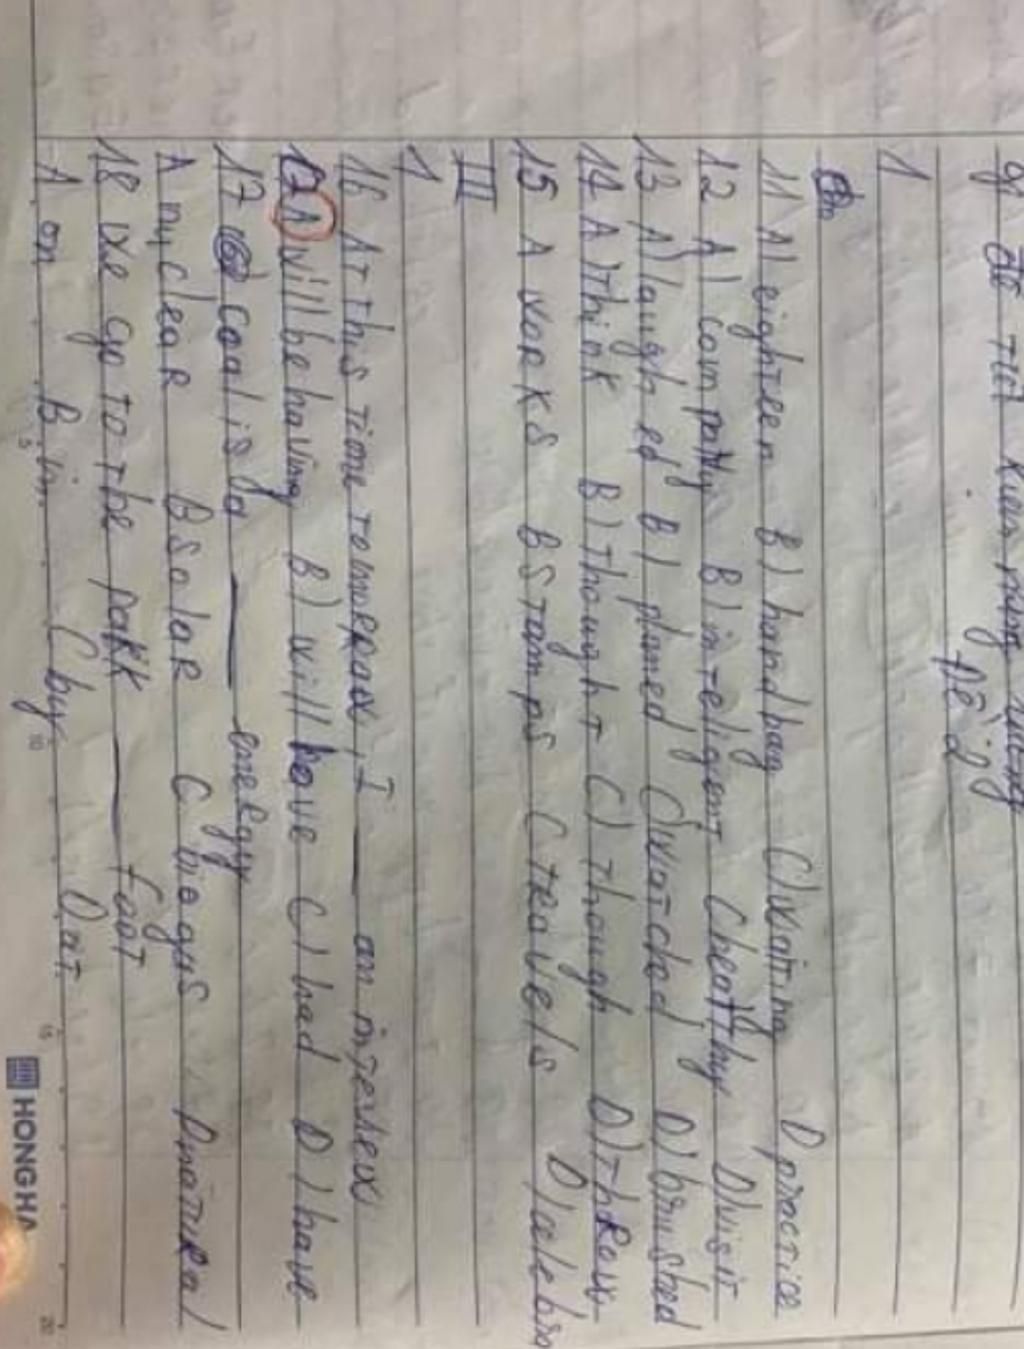 1
11 A) eighteen B) handbag C) waiting D practice
12 A) company B) inteligent C heathy D) visit
13 A) laughed B) planed C) watched D) brushed
14 A Think B) Thought C) Though D) Threw
15 A works B Stamps C travels D)
III
1
16 At This Time Tomorrow, I ___ an interview
A will be having B) will have C) had D) have
17 coal is a ___ energy
A nuclear B Solar C biogas D natural
18 We go To The park ___ foot
A on B in C by D at
HONGHA
5
10
15
20